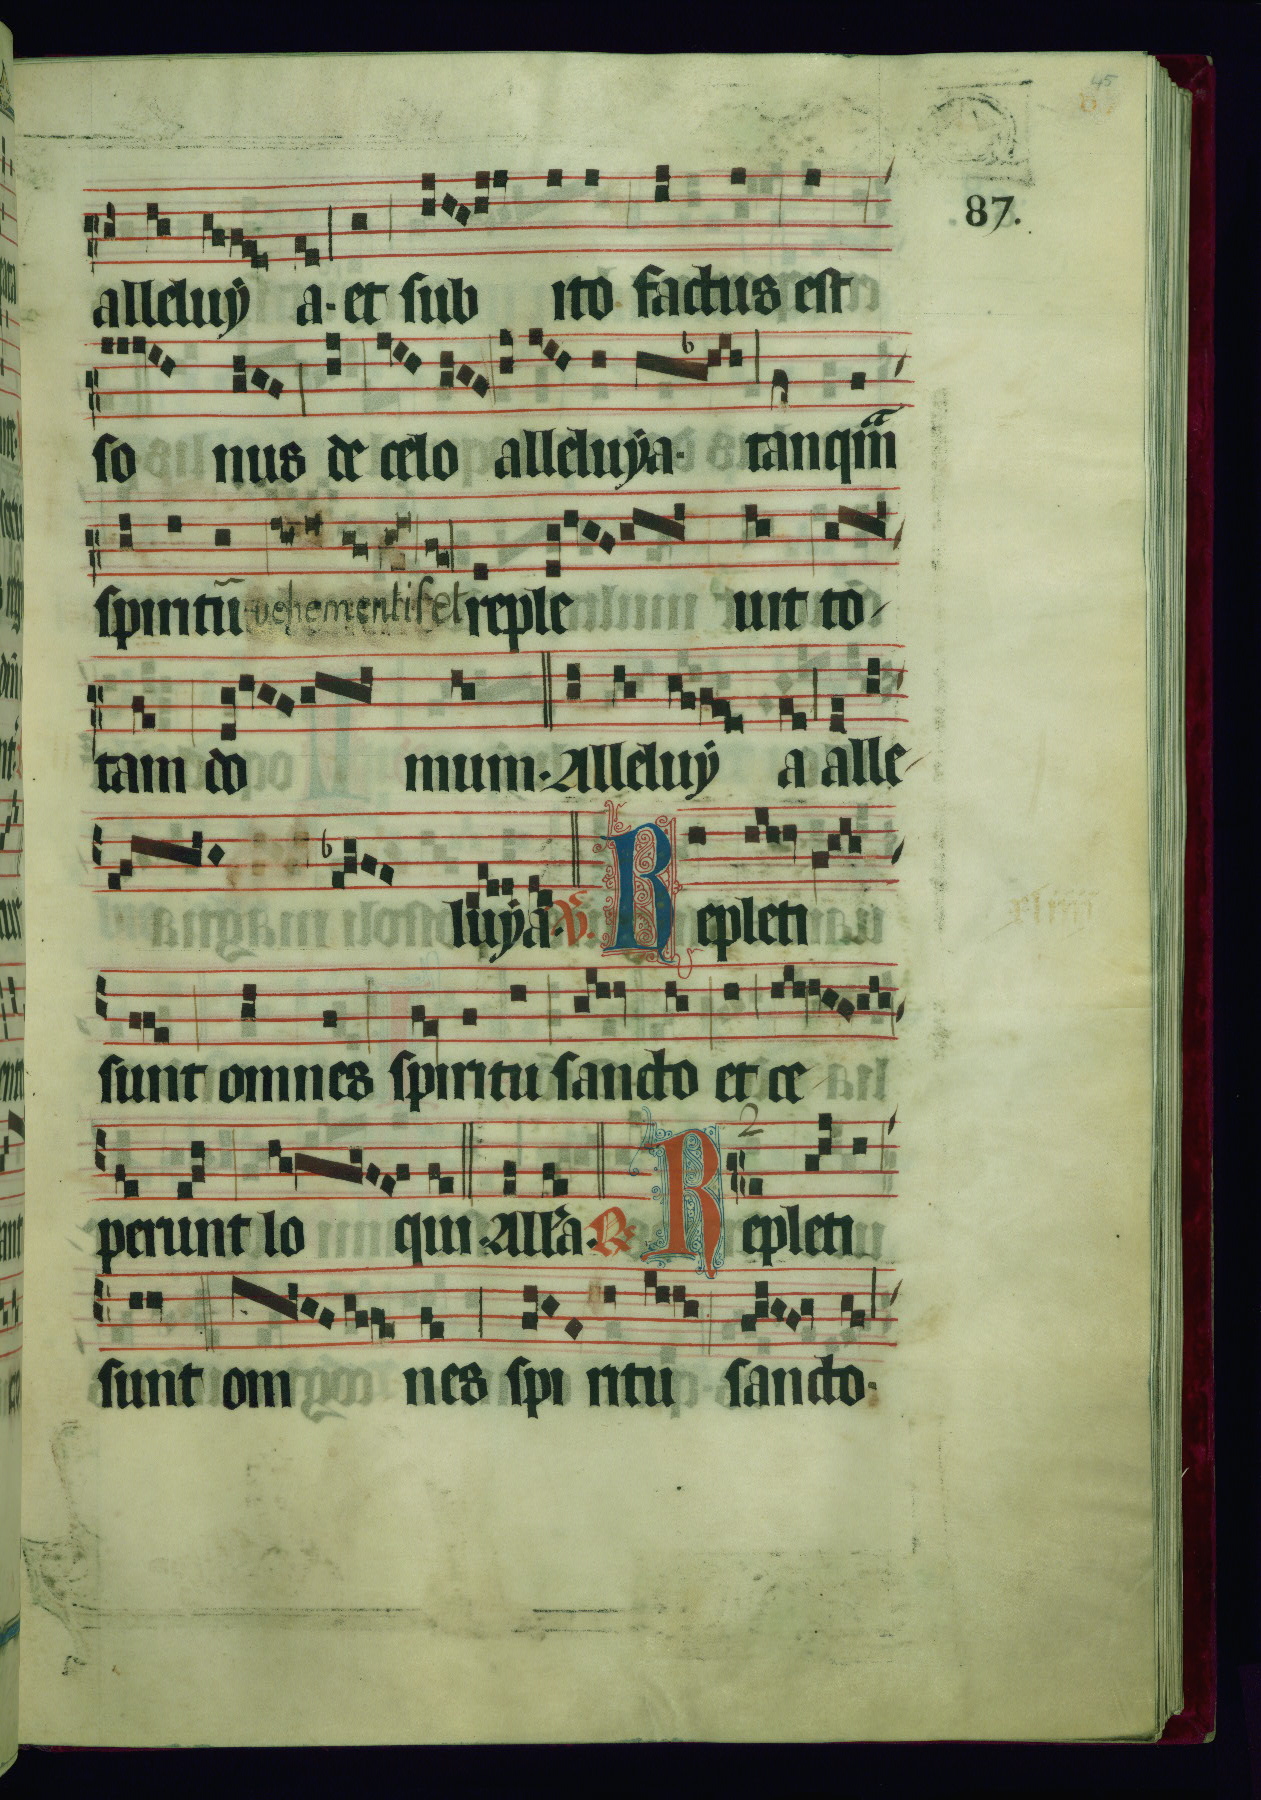 45
87.
alleluÿ a· et sub ito factus est
so nus de celo alleluÿa· tanqm̃a
spiritũ vehementis et reple uit to
tam do mum· Alleluÿ a alle
luÿa· ℣. Repleti
sunt omnes spiritu sancto et ce
2
perunt lo qui· All'a· ℟ Repleti
sunt om nes spi ritu sancto·